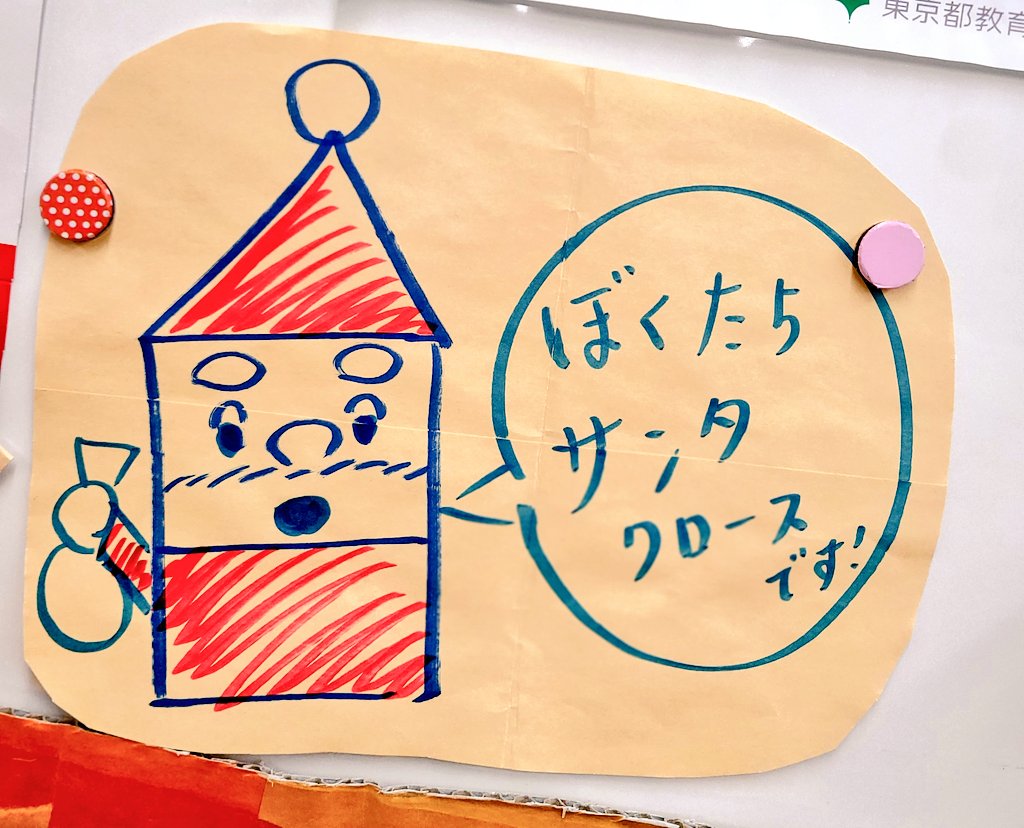 東京都教育
ぼくたち
サンタ
クロース
です!